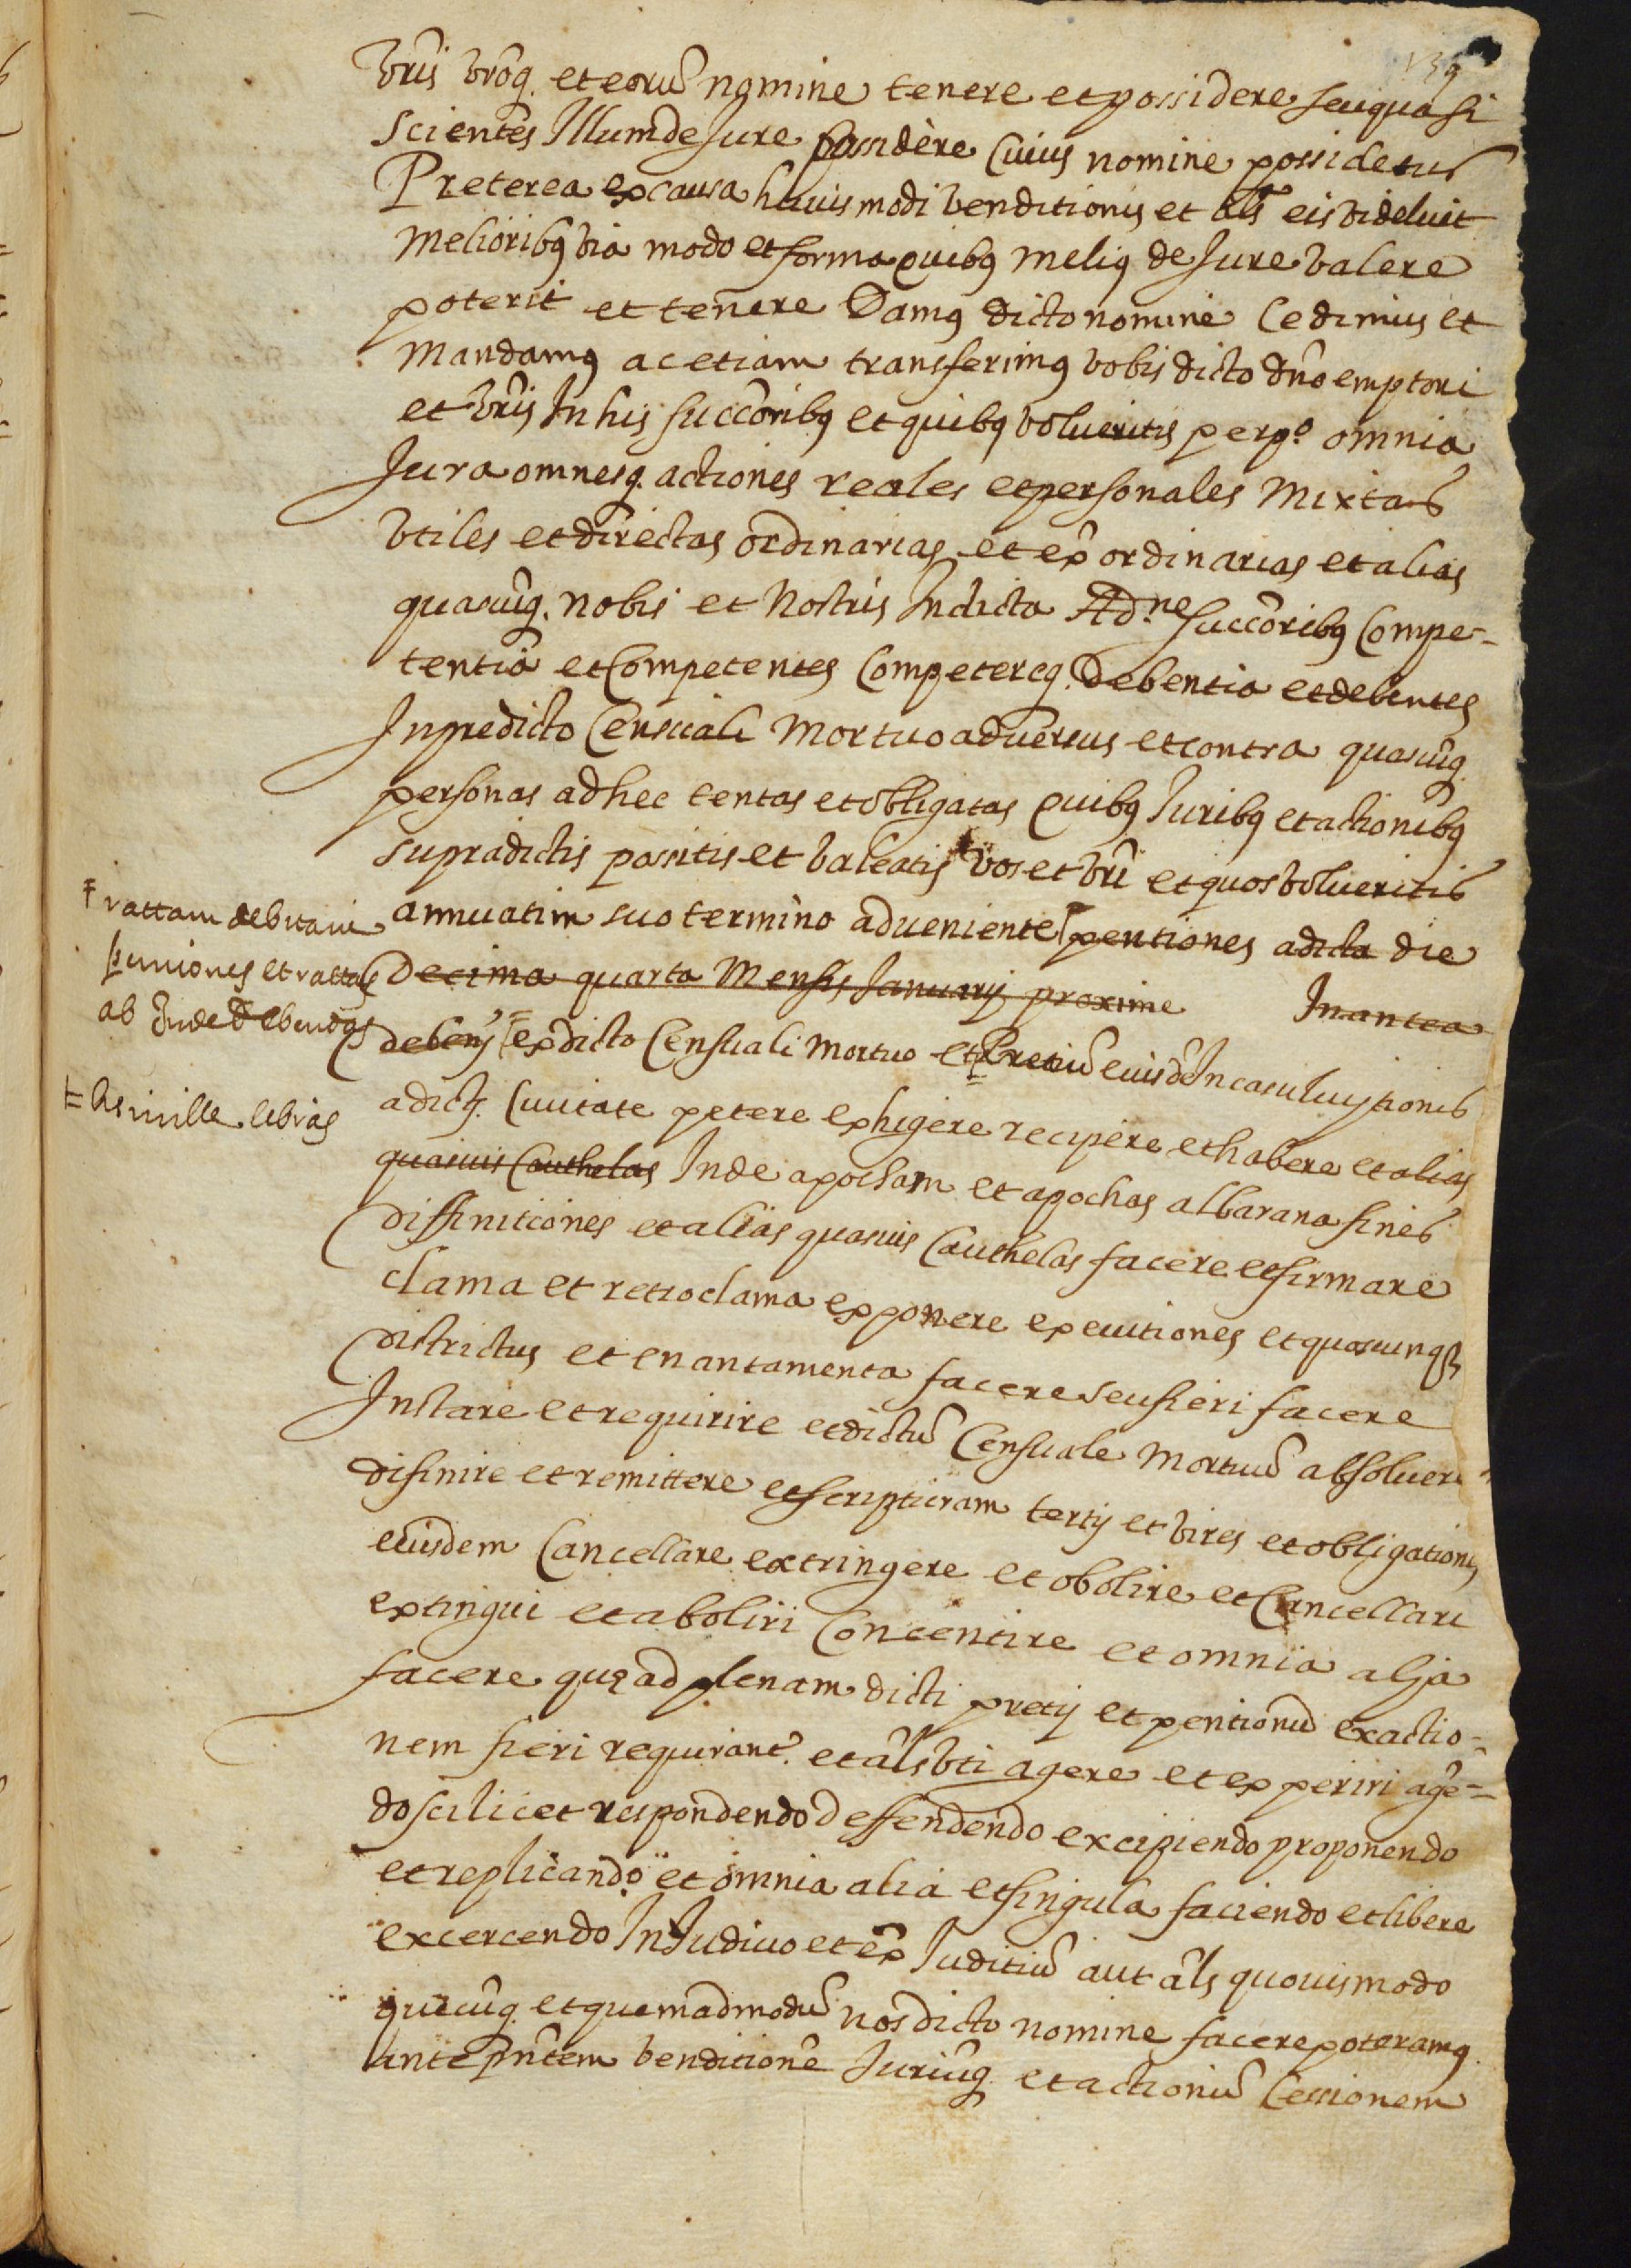 139
vr̃is vrõq. et eorũ nomine tenere et possidere seu quasi
scientes Illum de Jure possidere Cuius nomine possidetur
Preterea ex causa huiusmodi venditionis et als̃ eis
melioribꝯ via modo et forma quibꝯ meliꝯ de Jure valere
poterit et tenere Damꝯ dicto nomine Cedimus et
mandamꝯ ac etiam transferimꝯ vobis dicto dño emptori
et vr̃is In his succõribꝯ et quibꝯ volueritis perp.º omnia
Jura omnesq. actiones reales et personales mixtas
vtiles et directas ordinarias et ex̃ ordinarias et alias
quascũq. nobis et nostris In dicta Ad.ne succõribꝯ Compe=
tentia et Competentes Competereq. Debentia et debentes
In predicto Censuali mortuo aduersus et contra quascũq.
personas ad hec tentas et obligatas quibꝯ Juribꝯ et actionibꝯ
supradictis possitis et valeatis vos et vr̃i et quos volueritis
annuatim suo termino adueniente pentiones a dicta die
Decima quarta mensis Januarij proxime In antea
rattam debitam
pentiones et rattas
ab Inde debendas
debenꝯ ex dicto Censuali mortuo et Pretiũ euisdẽ In casu luytionis
= mille libras
a dictꝯ. Ciuitate petere exhigere recipere et habere et alias
quasuis Cauthelas Inde apocham et apochas albarana fines
diffinitiones et alias quasuis Cauthelas facere et firmare
clama et retroclama exponere executiones et quoscunqꝫ
districtus et enantamenta facere seu fieri facere
Instare et requirire et dictũ Censuale mortuũ absoluere
difinire et remittere et scripturam tertij et vires et obligationis
euisdem Cancellare extringere et obolire et Cancellari
extingui et aboliri Concentire et omnia alja
facere quę ad plenam dicti pretij et pentionũ exactio=
nem fieri requirant. et als̃ vti agere et experiri agẽ=
do scilicet respondendo deffendendo excipiendo proponendo
et replicando et omnia alia et singula faciendo et libere
excercendo In Judicio et ex̃ Juditiũ aut als̃ quouismodo
quecũq. et quemadmodũ nos dicto nomine facere poteramꝯ
ante pñtem venditionẽ Juriũq. et actionũ Cessionem